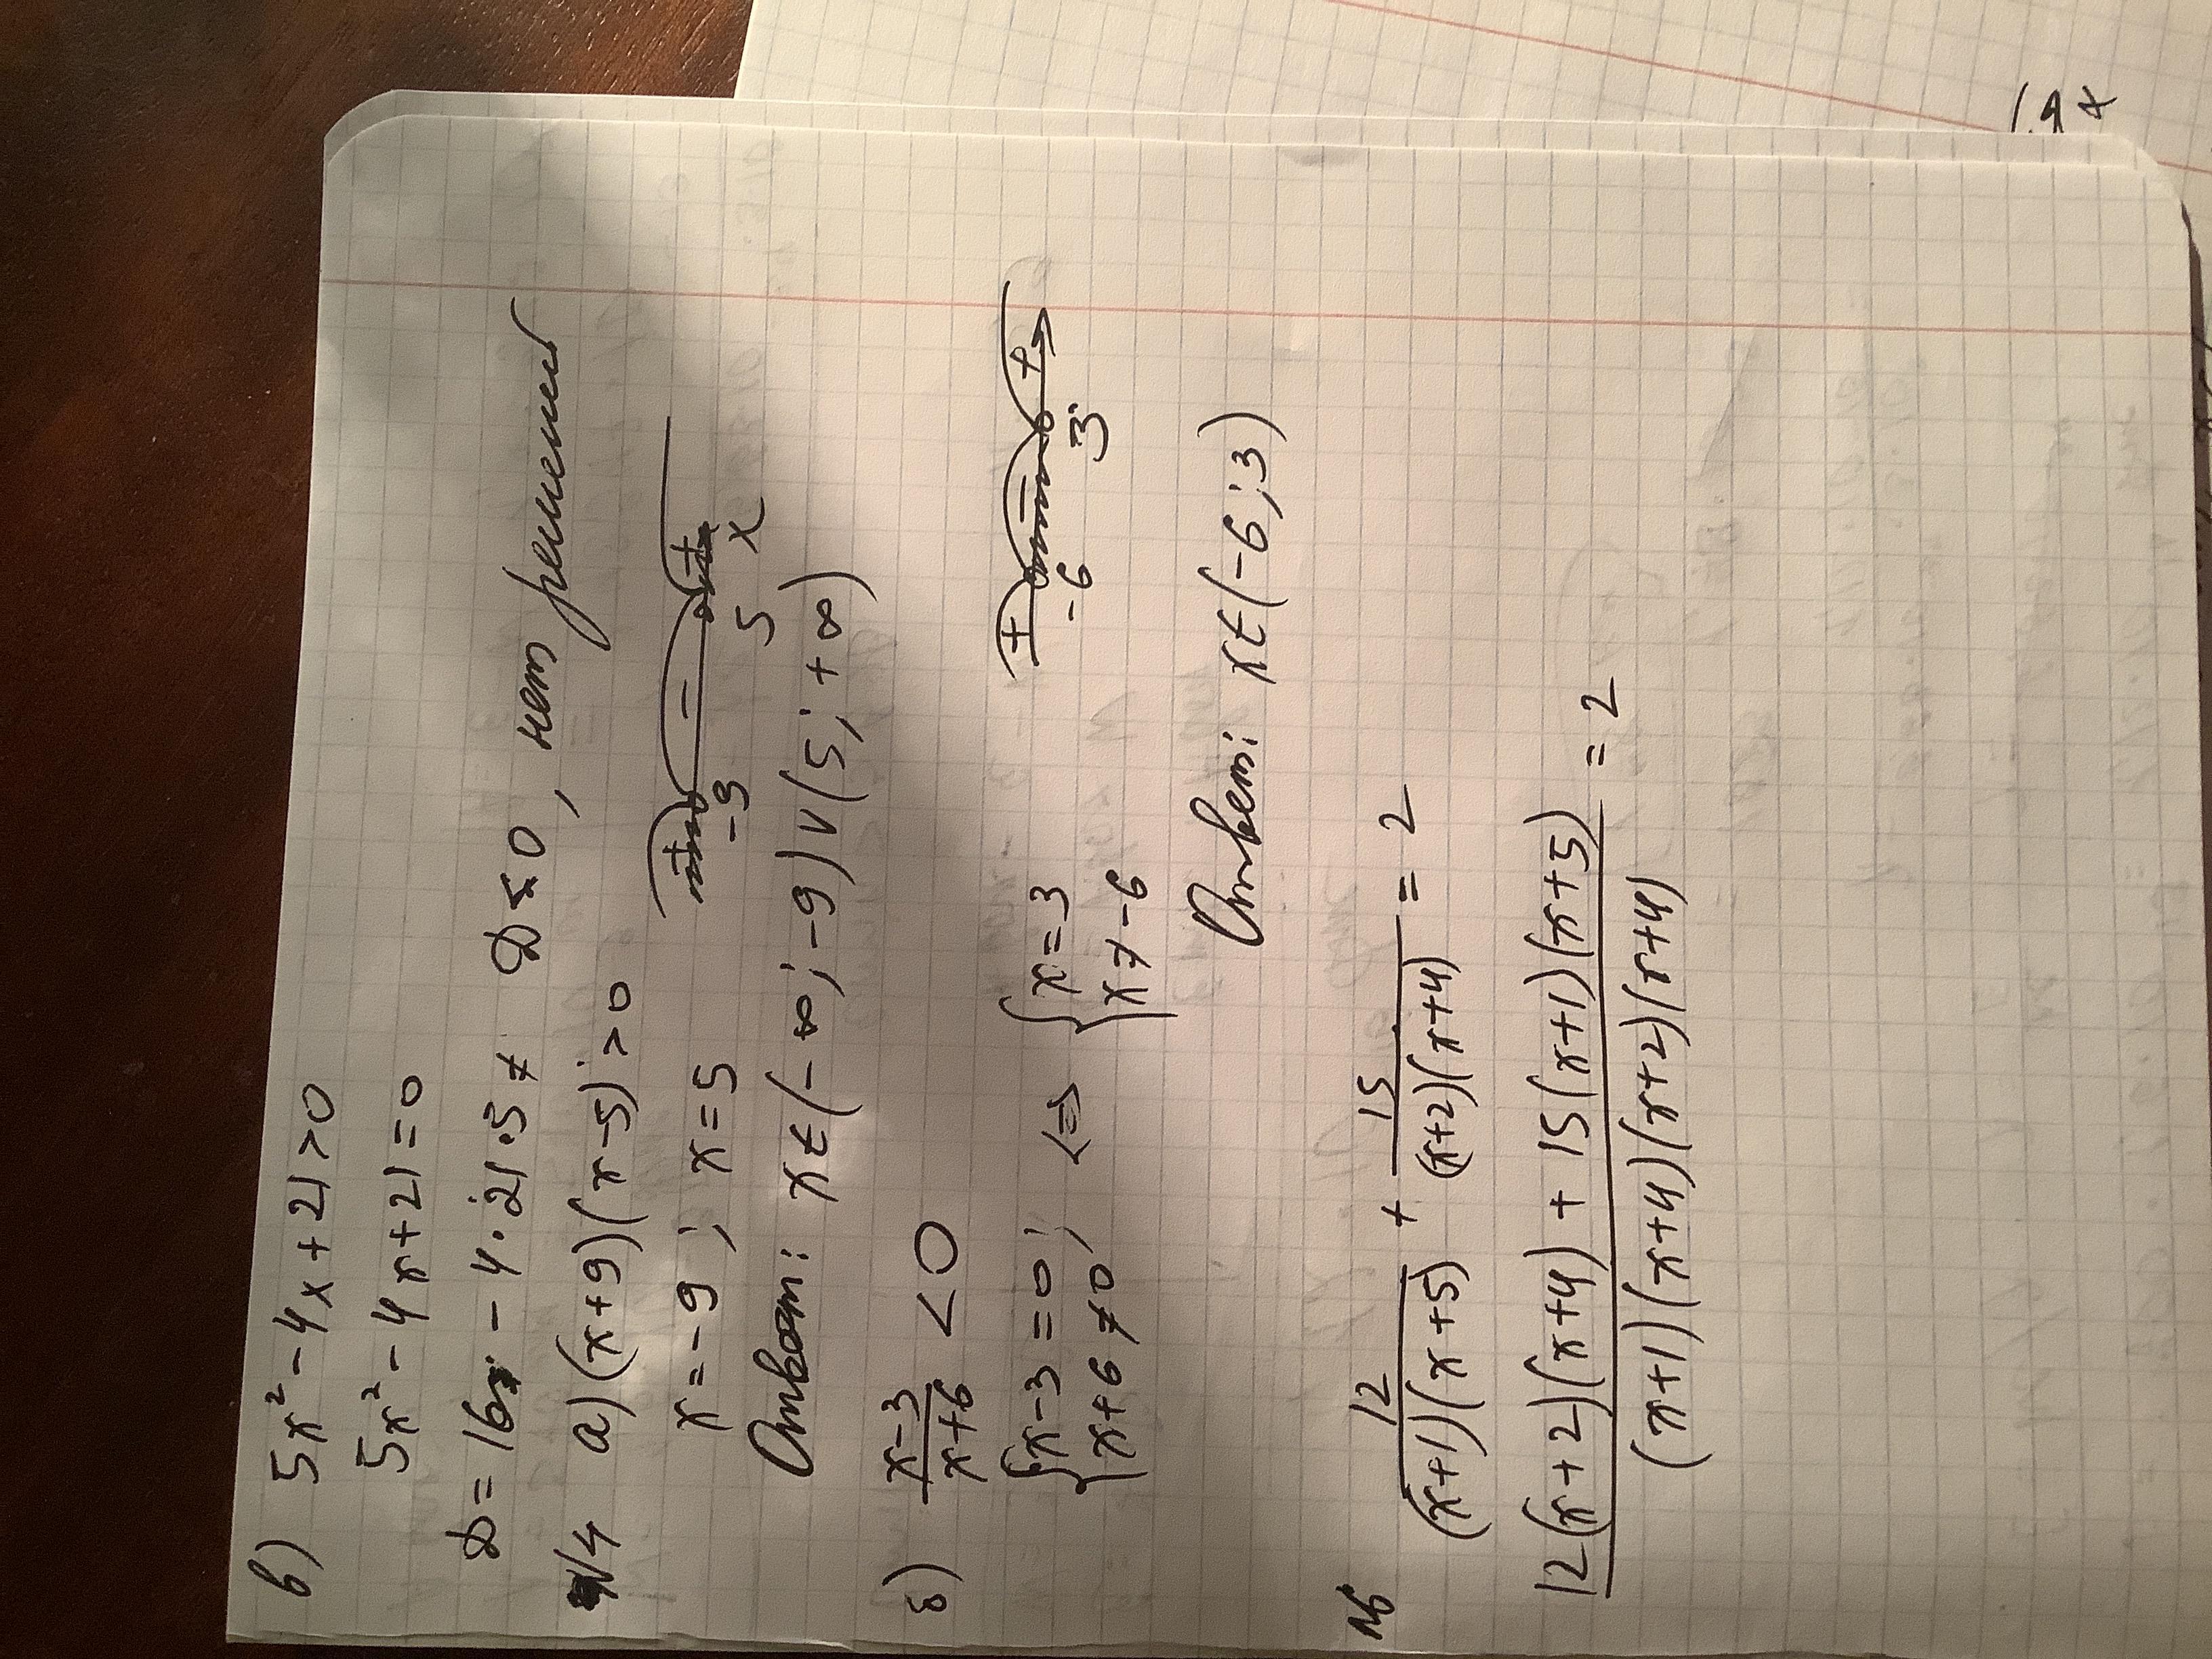 в) 5x² - 4x + 21 > 0
5x² - 4x + 21 = 0
D = 16 - 4 · 21 · 5 ≠ D < 0, нет решений
№4 а) (x+9)(x-5) > 0
x = -9; x = 5
+ - +
-9 5 x
Ответ: x ∈ (-∞; -9) ∪ (5; +∞)
б) (x-3)/(x+6) < 0
{x-3=0; {x+6≠0 <=> {x=3 {x≠-6
+ - +
-6 3
Ответ: x ∈ (-6; 3)
№6
12/((x+1)(x+5)) + 15/((x+2)(x+4)) = 2
(12(x+2)(x+4) + 15(x+1)(x+5))/((x+1)(x+4)(x+2)(x+4)) = 2